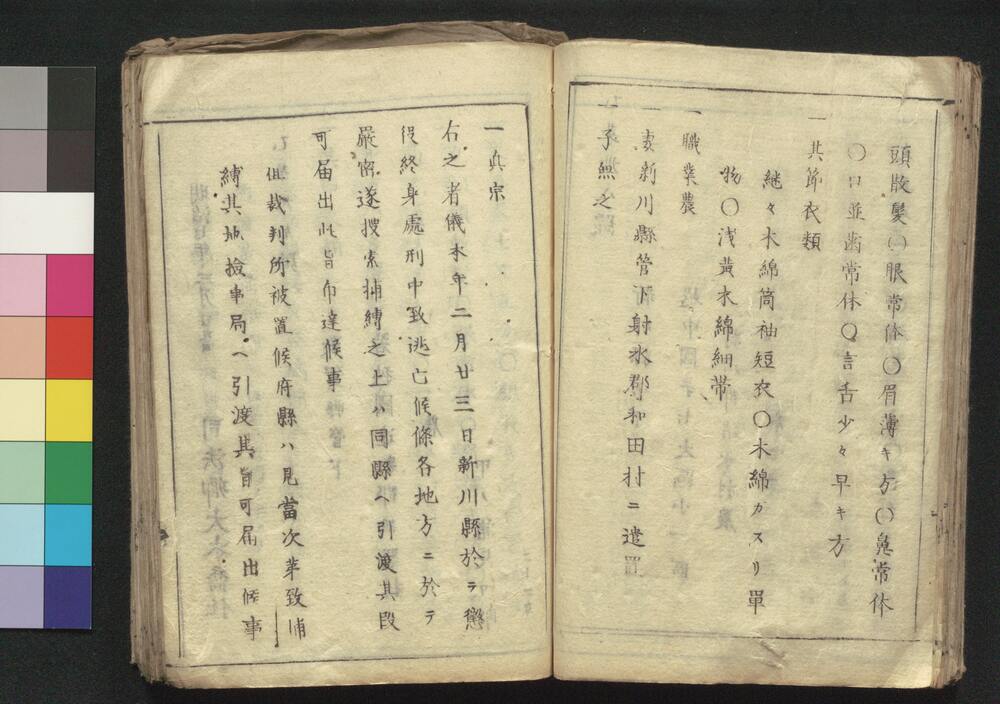 頭散髪〇眼常体〇眉薄キ方〇鼻常体
〇口並歯常体〇言舌少々早キ方
一其節衣類
継々木綿筒袖短衣〇木綿カスリ單
物〇浅黄木綿細帯
一職業農
妻新川縣管下射水郡和田村ニ遣置
子無之
一真宗
右之者儀本年二月廿三日新川縣於テ懲
役終身處刑中致逃亡候條各地方ニ於テ
嚴密遂捜索捕縛之上ハ同縣ヘ引渡其段
可届出此旨布達候事
但裁判所被置候府縣ハ見當次第致捕
縛其地檢事局ヘ引渡其旨可届出候事